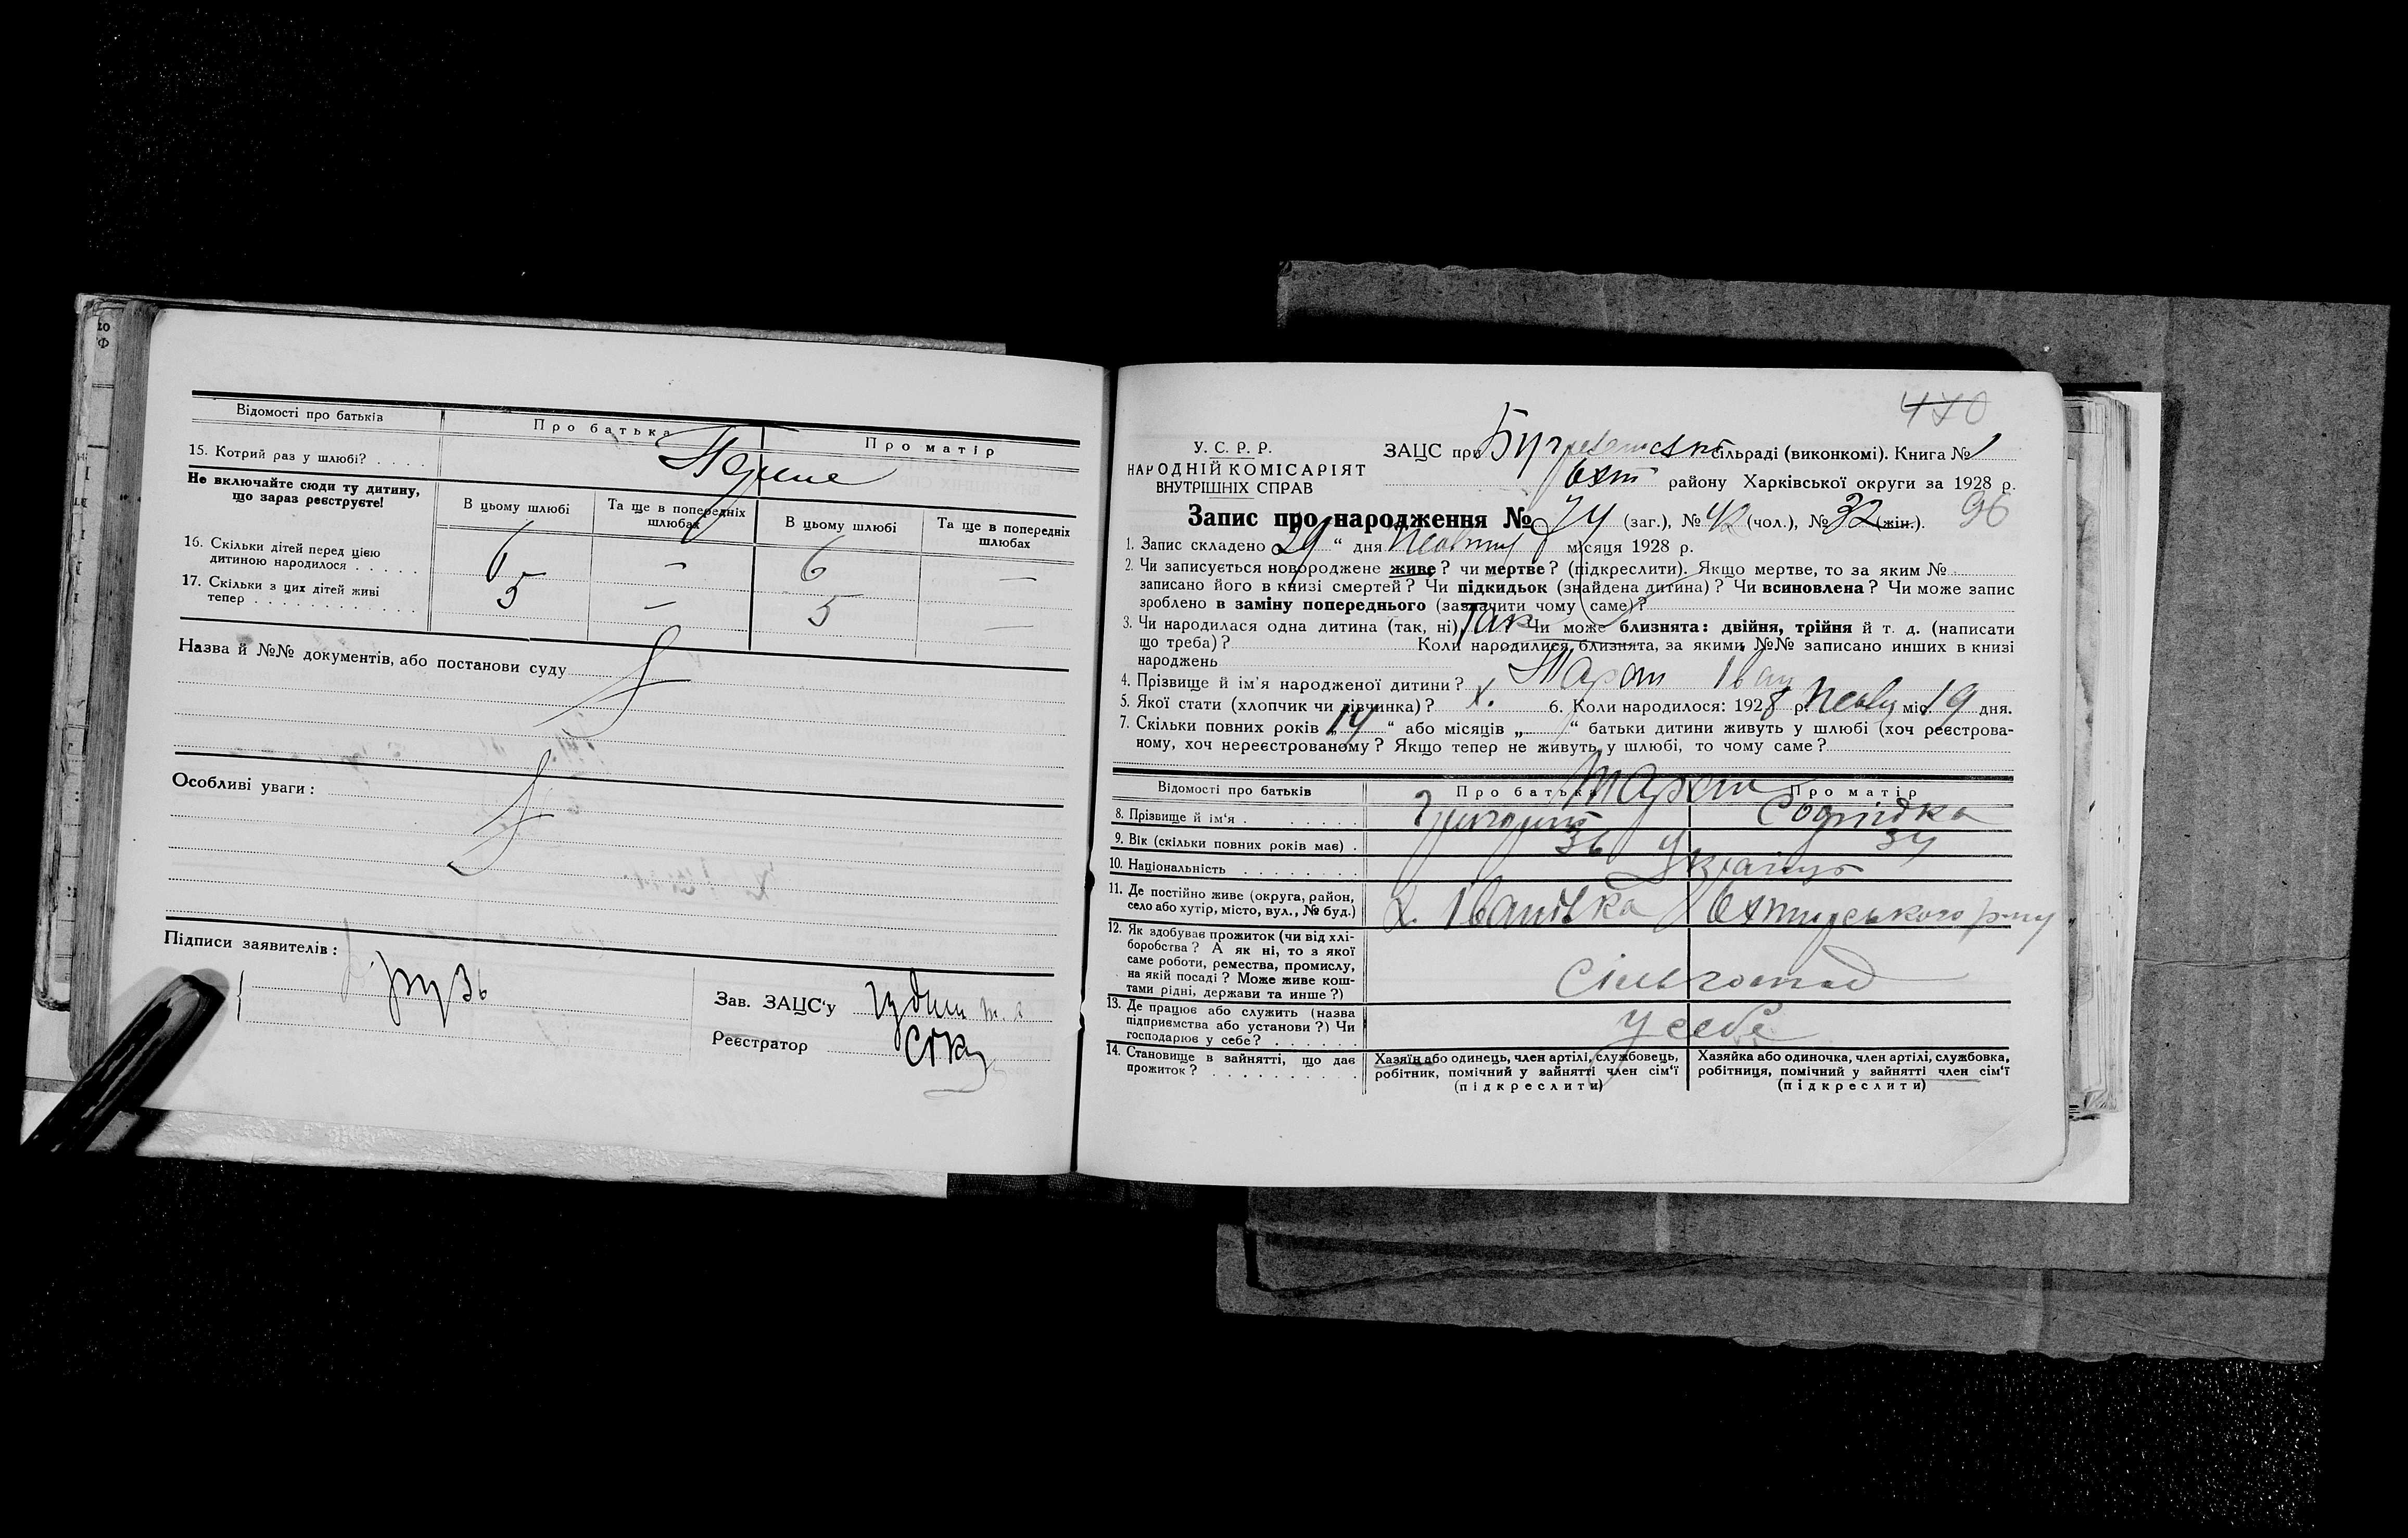 Відомості про батьків
Про батька
Про матір
15. Котрий раз у шлюбі? . . . .
Перше
Не включайте сюди ту дитину,
що зараз реєструєте!
В цьому шлюбі
Та ще в попередніх
шлюбах
В цьому шлюбі
Та ще в попередніх
шлюбах
16. Скільки дітей перед цією
дитиною народилося . . . . .
6 — 6 —
17. Скільки з цих дітей живі
тепер . . . . . . . . . . . .
5 — 5 —
Назва й №№ документів, або постанови суду
Особливі уваги:
Підписи заявителів:
Зав. ЗАЦС'у
Реєстратор
470
У. С. Р. Р.
НАРОДНІЙ КОМІСАРІЯТ
ВНУТРІШНІХ СПРАВ
ЗАЦС при сільраді (виконкомі). Книга № 1
Охт району Харківської округи за 1928 р.
96
Запис про народження № 74 (заг.), № 42 (чол.), № 32 (жін.).
1. Запис складено 29 " дня Жовтня місяця 1928 р.
2. Чи записується новороджене живе? чи мертве? (підкреслити). Якщо мертве, то за яким №
записано його в книзі смертей? Чи підкидьок (знайдена дитина)? Чи всиновлена? Чи може запис
зроблено в заміну попереднього (зазначити чому саме)?
3. Чи народилася одна дитина (так, ні) Так Чи може близнята: двійня, трійня й т. д. (написати
що треба)? Коли народилися близнята, за якими №№ записано инших в книзі
народжень
4. Прізвище й ім'я народженої дитини? Іван
5. Якої стати (хлопчик чи дівчинка)? х. 6. Коли народилося: 1928 р. Жовт міс 19 дня.
7. Скільки повних років „ 14 " або місяців „ " батьки дитини живуть у шлюбі (хоч реєстрова-
ному, хоч нереєстрованому? Якщо тепер не живуть у шлюбі, то чому саме?
Відомості про батьків
Про батька
Про матір
8. Прізвище й ім'я . . . . . . .
Григорій
9. Вік (скільки повних років має) .
36 34
10. Національність . . . . . . . .
Українці
11. Де постійно живе (округа, район,
село або хутір, місто, вул., № буд.)
х. Іванівка Охтирського р-ну
12. Як здобуває прожиток (чи від хлі-
боробства? А як ні, то з якої
саме роботи, ремества, промислу,
на якій посаді? Може живе кош-
тами рідні, держави та инше?)
Сільгоспод
13. Де працює або служить (назва
підприємства або установи?) Чи
господарює у себе? . . . . . .
У себе
14. Становище в зайнятті, що дає
прожиток? . . . . . . . . . .
Хазяїн або одинець, член артілі, службовець,
робітник, помічний у зайнятті член сім'ї
(підкреслити)
Хазяйка або одиночка, член артілі, службовка,
робітниця, помічний у зайнятті член сім'ї
(підкреслити)